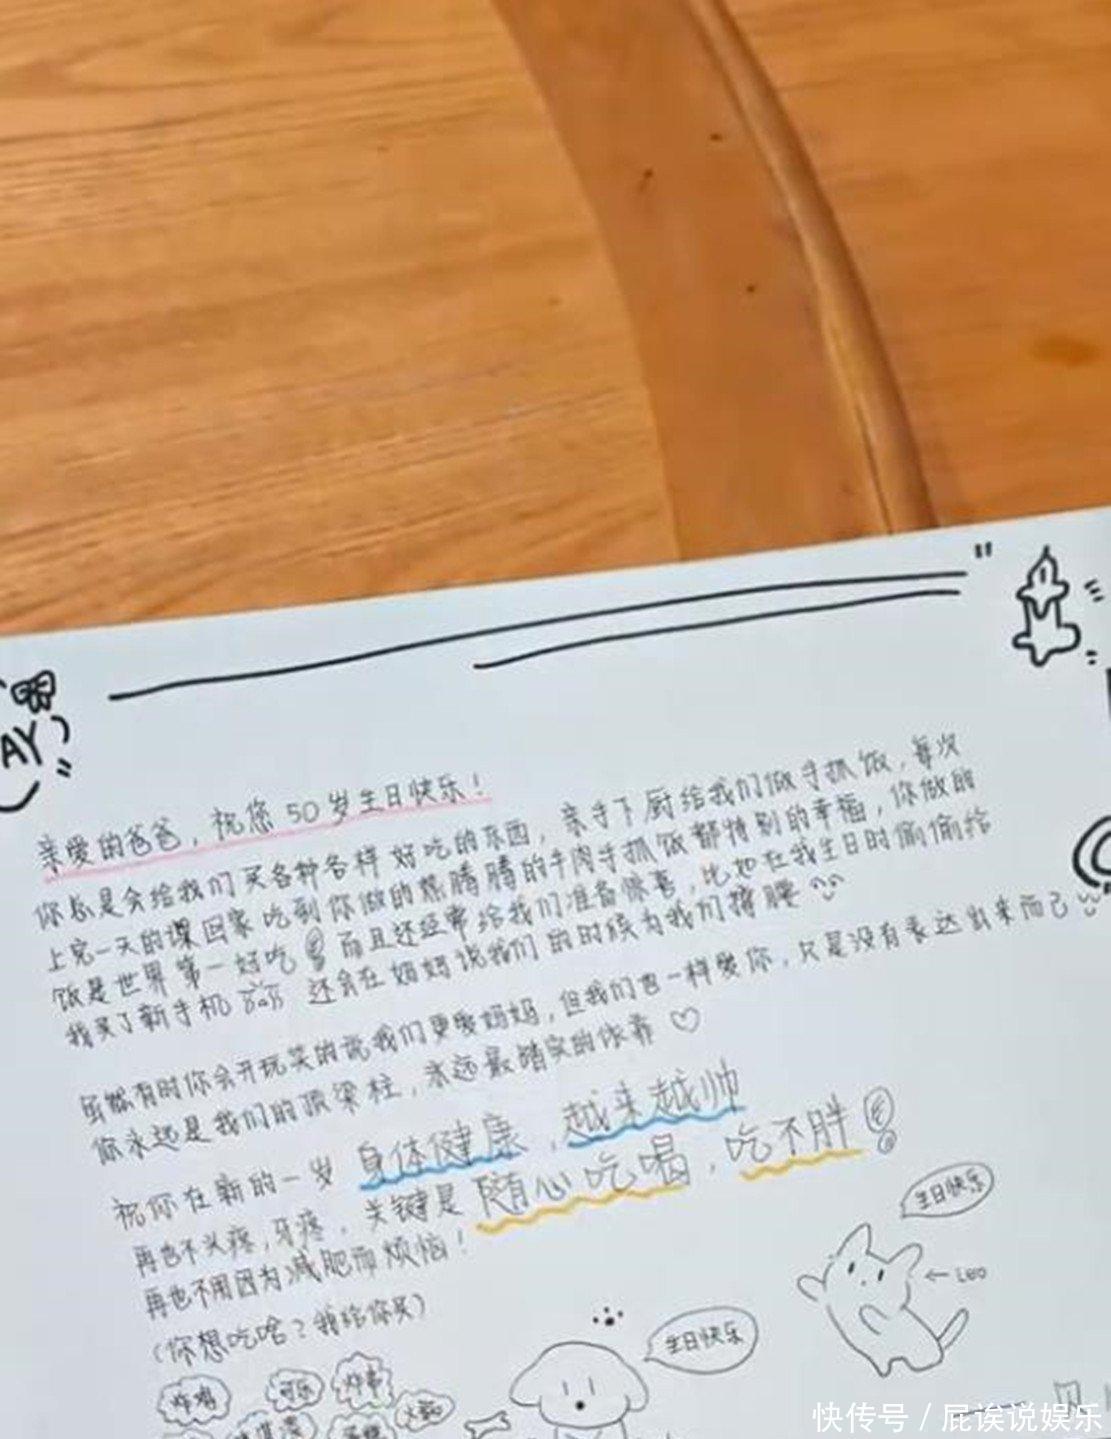 AY
亲爱的爸爸，祝您50岁生日快乐！
你总是会给我们买各种各样好吃的东西，亲手下厨给我们做手抓饭，每次
上完一天的课回家吃到你做的热腾腾的牛肉手抓饭都特别的幸福，你做的
饭是世界第一好吃 而且还经常给我们准备惊喜，比如在我生日时偷偷给
我买了新手机 还会在妈妈说我们的时候为我们撑腰
虽然有时你会开玩笑的说我们更爱妈妈，但我们也一样爱你，只是没有表达出来而已
你永远是我们的顶梁柱，永远最踏实的依靠
祝你在新的一岁 身体健康，越来越帅
再也不头疼，牙疼，关键是随心吃喝，吃不胖
再也不用因为减肥而烦恼！
（你想吃啥？我给你买）
生日快乐
Leo
生日快乐
炸鸡
可乐
炸串
火锅
快传号/屁诶说娱乐